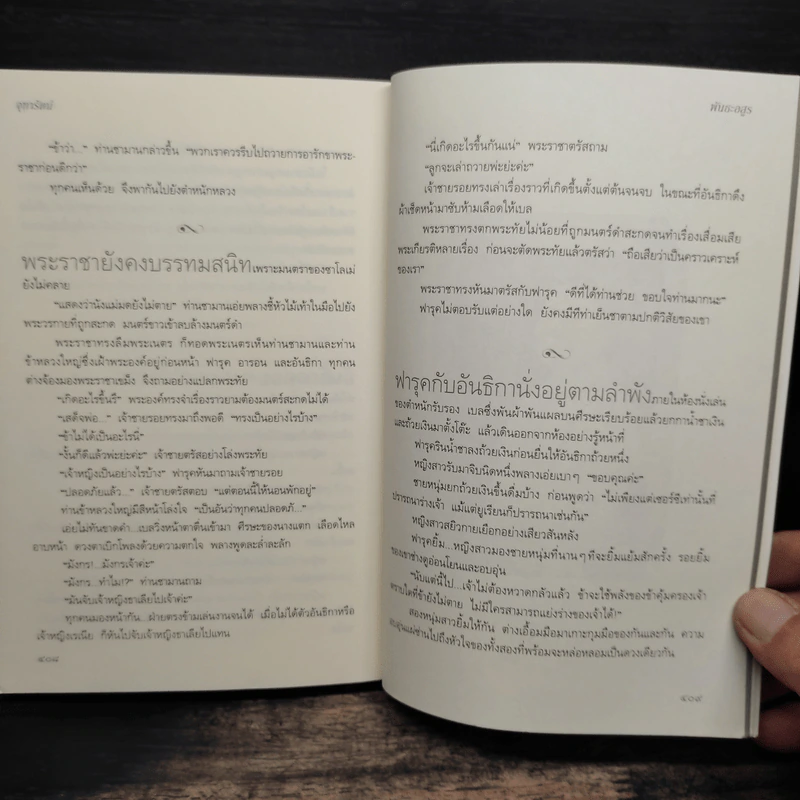 จุฑารัตน์
"ข้าว่า..." ท่านชามานกล่าวขึ้น "พวกเราควรรีบไปถวายการอารักขาพระ-
ราชาก่อนดีกว่า"
ทุกคนเห็นด้วย จึงพากันไปยังตำหนักหลวง
พระราชายังคงบรรทมสนิทเพราะมนตราของซาโลเม่
ยังไม่คลาย
"แสดงว่านังแม่มดยังไม่ตาย" ท่านชามานเอ่ยพลางชี้หัวไม้เท้าในมือไปยัง
พระวรกายที่ถูกสะกด มนตร์ขาวเข้าลบล้างมนตร์ดำ
พระราชาทรงลืมพระเนตร ก็ทอดพระเนตรเห็นท่านชามานและท่าน
ข้าหลวงใหญ่ซึ่งเฝ้าพระองค์อยู่ก่อนหน้า ฟารุค อารอน และอันธิกา ทุกคน
ต่างจ้องมองพระราชาเขม็ง จึงถามอย่างแปลกพระทัย
"เกิดอะไรขึ้นรึ" พระองค์ทรงจำเรื่องราวยามต้องมนตร์สะกดไม่ได้
"เสด็จพ่อ..." เจ้าชายรอยทรงมาถึงพอดี "ทรงเป็นอย่างไรบ้าง"
"ข้าไม่ได้เป็นอะไรนี่"
"งั้นก็ดีแล้วพ่ะย่ะค่ะ" เจ้าชายตรัสอย่างโล่งพระทัย
"เจ้าหญิงเป็นอย่างไรบ้าง" ฟารุคหันมาถามเจ้าชายรอย
"ปลอดภัยแล้ว..." เจ้าชายตรัสตอบ "แต่ตอนนี้ให้นอนพักอยู่"
ท่านข้าหลวงใหญ่มีสีหน้าโล่งใจ "เป็นอันว่าทุกคนปลอดภั..."
เอยไม่ทันขาดคำ...เบลวิ่งหน้าตาตื่นเข้ามา ศีรษะของนางแตก เลือดไหล
อาบหน้า ดวงตาเบิกโพลงด้วยความตกใจ พลางพูดละล่ำละลัก
"มังกร!...มังกรเจ้าค่ะ"
"มังกร...ทำไม!?" ท่านชามานถาม
"มันจับเจ้าหญิงธาเลียไปเจ้าค่ะ"
ทุกคนมองหน้ากัน...ฝ่ายตรงข้ามเล่นงานจนได้ เมื่อไม่ได้ตัวอันธิกาหรือ
เจ้าหญิงเรเนีย ก็หันไปจับเจ้าหญิงธาเลียไปแทน
๔๐๘
พันธะอสูร
"นี่เกิดอะไรขึ้นกันแน่" พระราชาตรัสถาม
"ลูกจะเล่าถวายพ่ะย่ะค่ะ"
เจ้าชายรอยทรงเล่าเรื่องราวที่เกิดขึ้นตั้งแต่ต้นจนจบ ในขณะที่อันธิกาดึง
ผ้าเช็ดหน้ามาซับห้ามเลือดให้เบล
พระราชาทรงตกพระทัยไม่น้อยที่ถูกมนตร์ดำสะกดจนทำเรื่องเสื่อมเสีย
พระเกียรติหลายเรื่อง ก่อนจะตัดพระทัยแล้วตรัสว่า "ถือเสียว่าเป็นคราวเคราะห์
ของเรา"
พระราชาทรงหันมาตรัสกับฟารุค "ดีที่ได้ท่านช่วย ขอบใจท่านมากนะ"
ฟารุคไม่ตอบรับแต่อย่างใด ยังคงมีทีท่าเย็นชาตามปกติวิสัยของเขา
ฟารุคกับอันธิกานั่งอยู่ตามลำพังภายในห้องนั่งเล่น
ของตำหนักรับรอง เบลซึ่งพันผ้าพันแผลบนศีรษะเรียบร้อยแล้วยกกาน้ำชาเงิน
และถ้วยเงินมาตั้งโต๊ะ แล้วเดินออกจากห้องอย่างรู้หน้าที่
ฟารุครินน้ำชาลงถ้วยเงินก่อนยื่นให้อันธิกาถ้วยหนึ่ง
หญิงสาวรับมาจิบนิดหนึ่งพลางเอ่ยเบาๆ "ขอบคุณค่ะ"
ชายหนุ่มยกถ้วยเงินขึ้นดื่มบ้าง ก่อนพูดว่า "ไม่เพียงแต่เซอร์ซีเท่านั้นที่
ปรารถนาร่างเจ้า แม้แต่ยูเรียนก็ปรารถนาเช่นกัน"
หญิงสาวสยิวกายเยือกอย่างเสียวสันหลัง
ฟารุคยิ้ม...หญิงสาวมองชายหนุ่มที่นานๆ ทีจะยิ้มแย้มสักครั้ง รอยยิ้ม
ของเขาช่างดูอ่อนโยนและอบอุ่น
"นับแต่นี้ไป...เจ้าไม่ต้องหวาดกลัวแล้ว ข้าจะใช้พลังของข้าคุ้มครองเจ้า
ตราบใดที่ข้ายังไม่ตาย ไม่มีใครสามารถแย่งร่างของเจ้าได้!"
สองหนุ่มสาวยิ้มให้กัน ต่างเอื้อมมือมาเกาะกุมมือของกันและกัน ความ
อบอุ่นแผ่ซ่านไปถึงหัวใจของทั้งสองที่พร้อมจะหล่อหลอมเป็นดวงเดียวกัน
๔๐๙